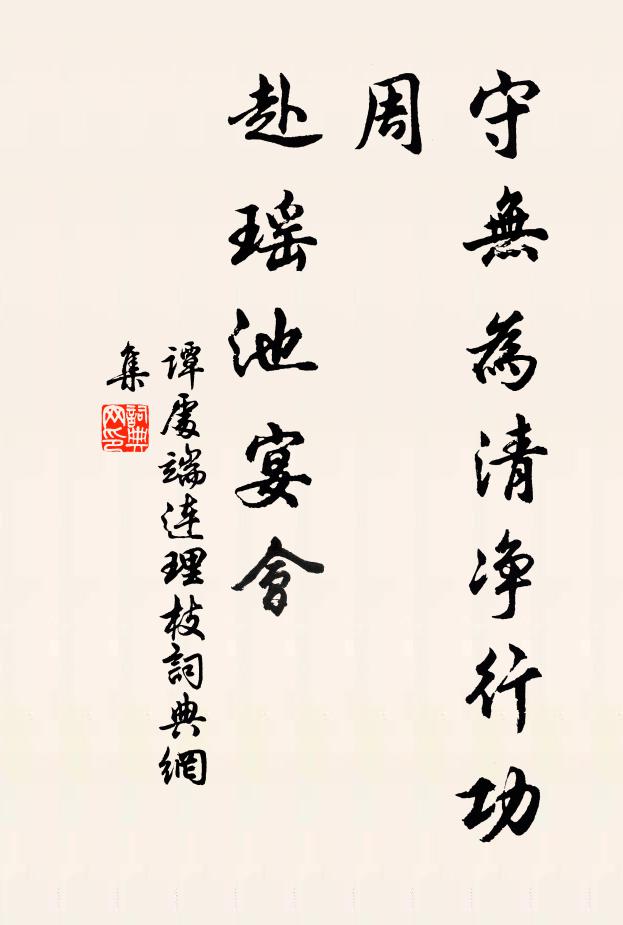 守無為清净行功
周
赴瑶池宴會
譚處端連理枝詞典網
集
詞典网印